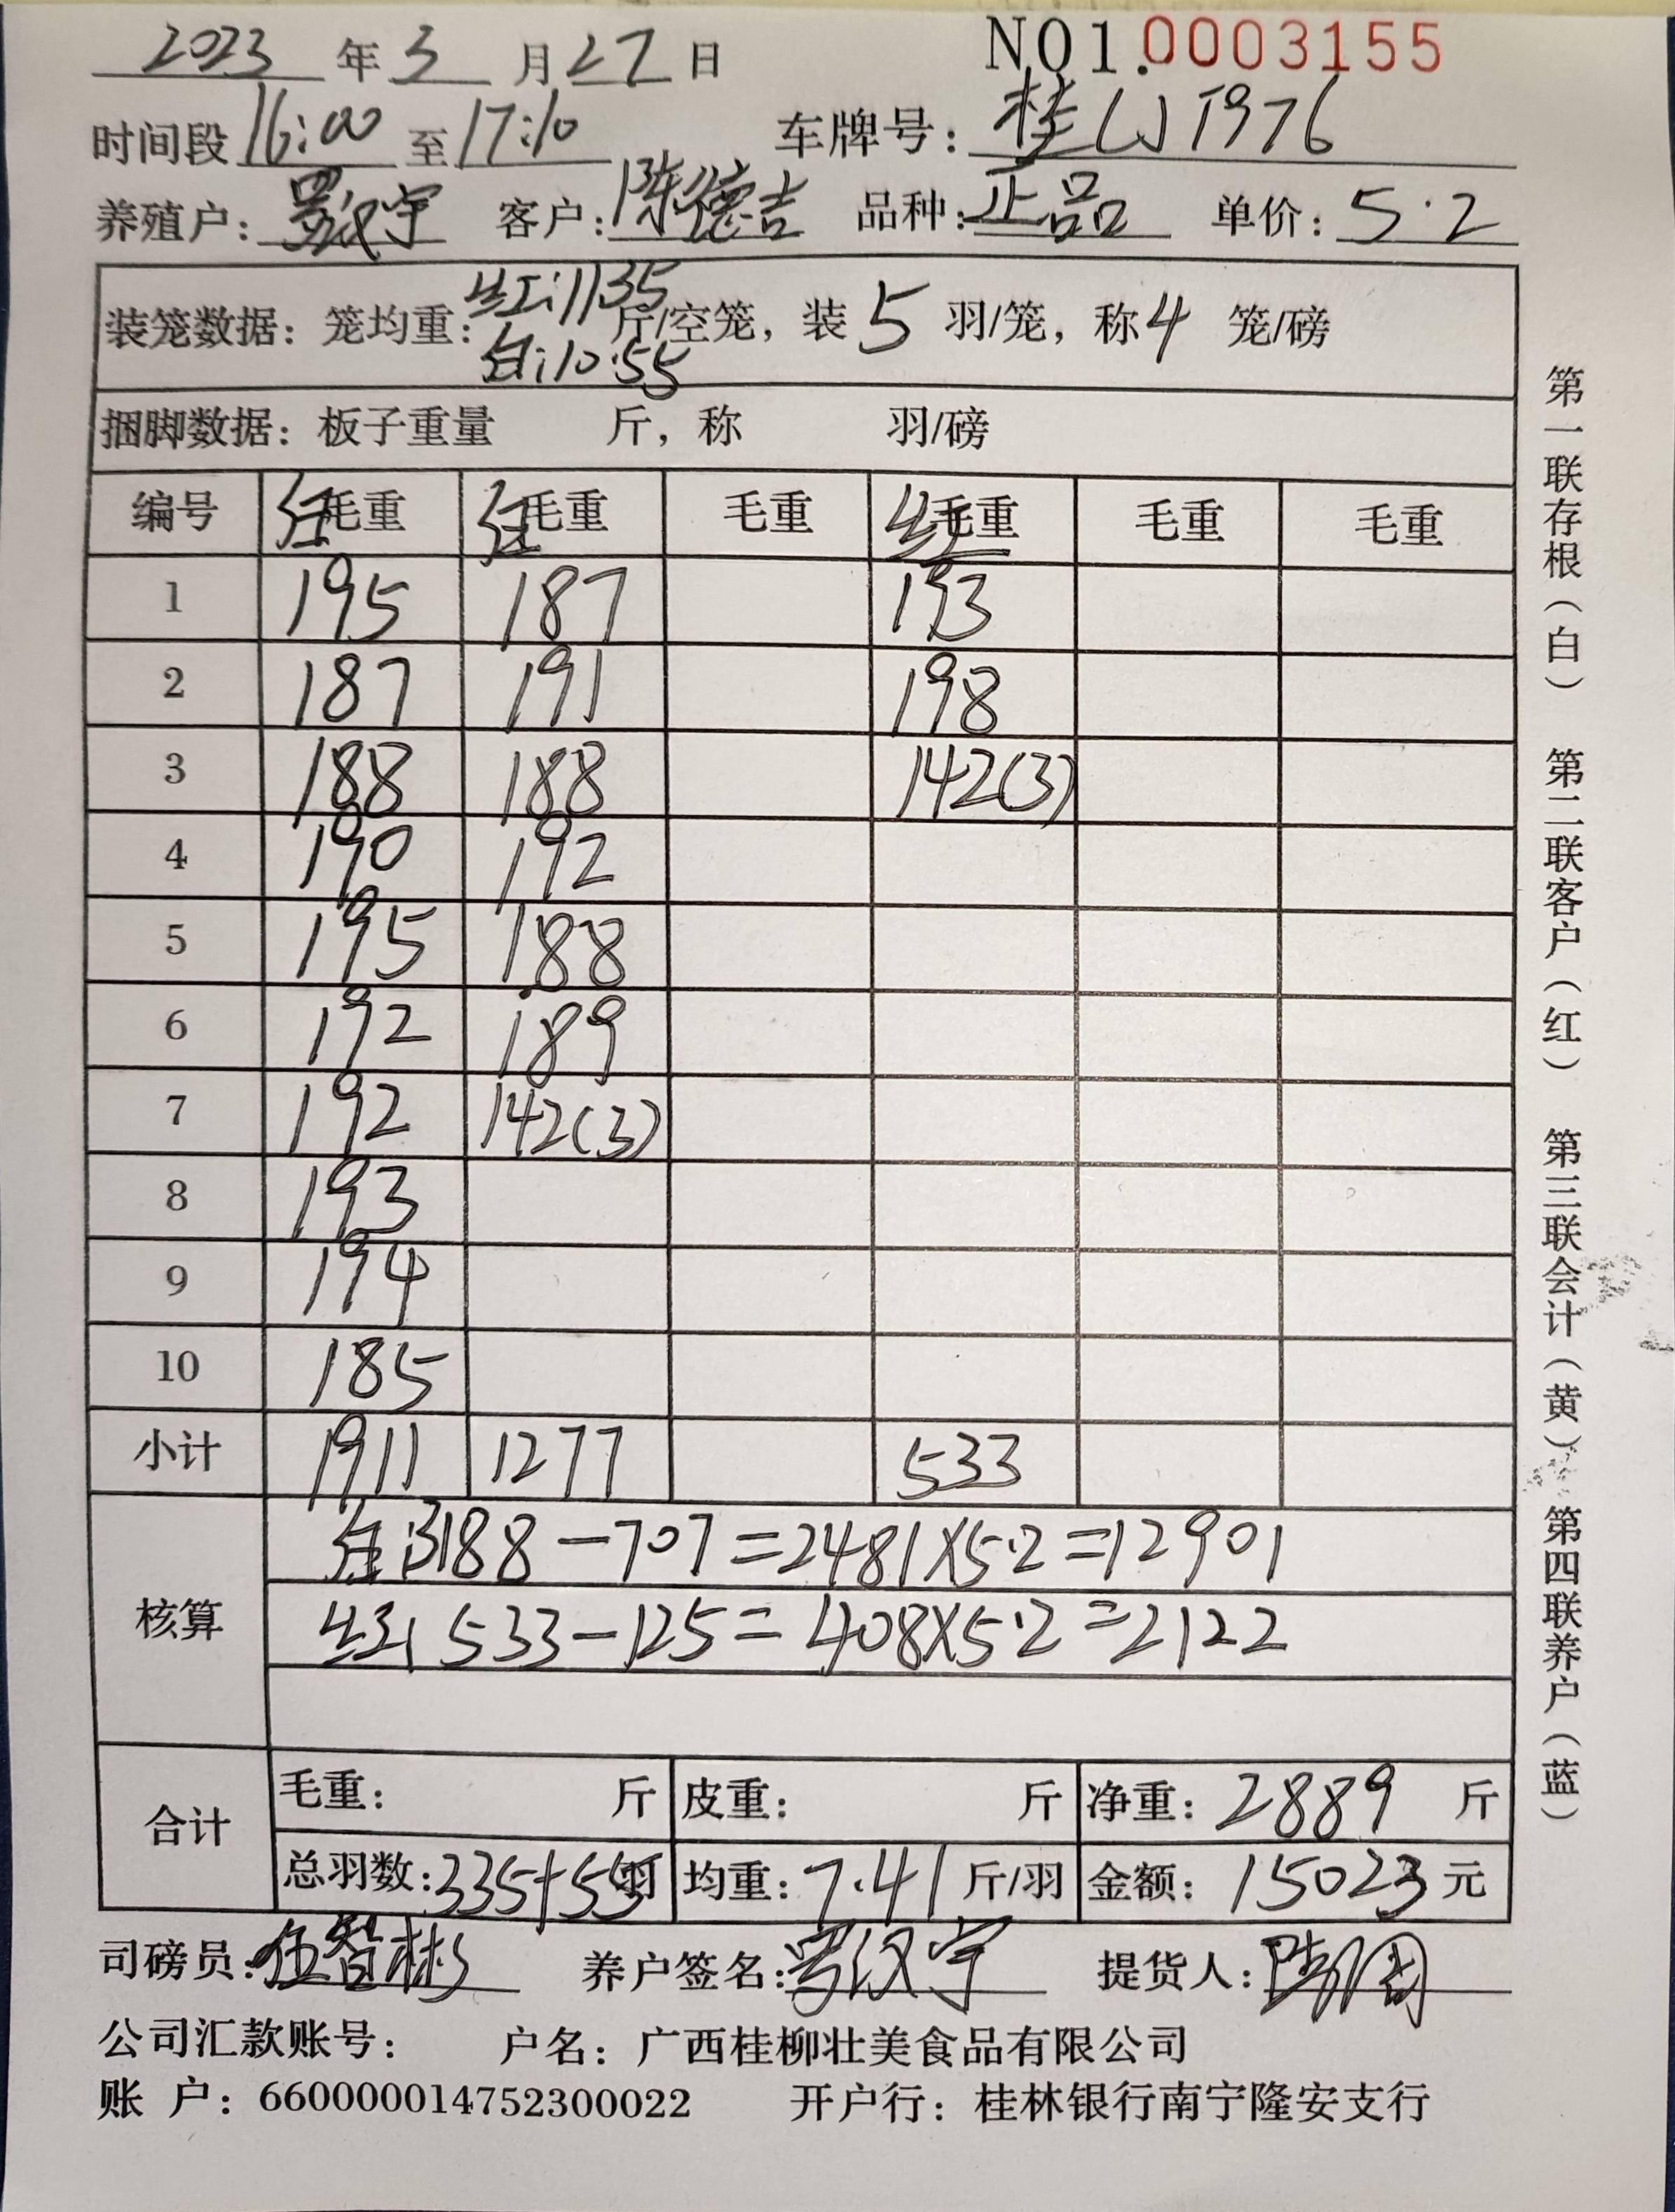 2023 年 3 月 27 日 NO1.0003155
时间段 16:00 至 17:10 车牌号: 桂 T1976
养殖户: 罗汉宇 客户: 陈德吉 品种: 正品 单价: 5.2
装笼数据: 笼均重: 红:11.35 白:10.55 斤/空笼, 装 5 羽/笼, 称 4 笼/磅
捆脚数据: 板子重量 斤, 称 羽/磅
编号 白 毛重 白 毛重 毛重 红 毛重 毛重 毛重
1 195 187 193
2 187 191 198
3 188 188 142(3)
4 190 192
5 195 188
6 192 189
7 192 142(3)
8 193
9 194
10 185
小计 1911 1277 533
核算 白:3188-707=2481×5.2=12901
红: 533-125=408×5.2=2122
合计 毛重: 斤 皮重: 斤 净重: 2889 斤
总羽数: 335+55 羽 均重: 7.41 斤/羽 金额: 15023 元
司磅员: 伍智彬 养户签名: 罗汉宇 提货人:
公司汇款账号: 户名: 广西桂柳壮美食品有限公司
账 户: 660000014752300022 开户行: 桂林银行南宁隆安支行
第一联存根(白) 第二联客户(红) 第三联会计(黄) 第四联养户(蓝)